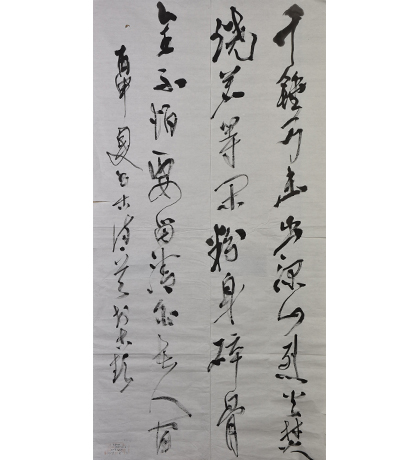 千锤万击出深山烈火焚
烧若等闲粉身碎骨
全不怕要留清白在人间
夏